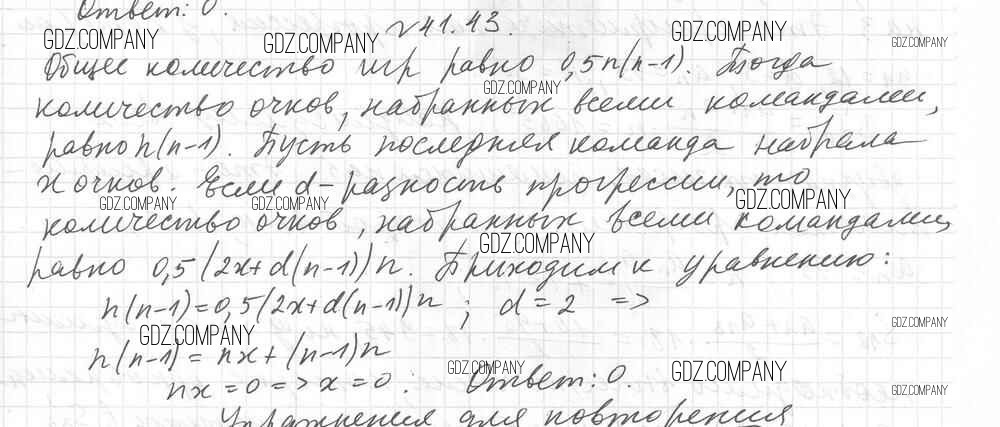 Ответ: 0.
№41.43.
GDZ.COMPANY GDZ.COMPANY GDZ.COMPANY GDZ.COMPANY
Общее количество игр равно 0,5n(n-1). Тогда
GDZ.COMPANY
количество очков, набранных всеми командами,
равно n(n-1). Пусть последняя команда набрала
x очков. Если d-разность прогрессии, то
GDZ.COMPANY GDZ.COMPANY GDZ.COMPANY
количество очков, набранных всеми командами,
GDZ.COMPANY
равно 0,5(2x+d(n-1))n. Приходим к уравнению:
n(n-1)=0,5(2x+d(n-1))n; d=2 =>
GDZ.COMPANY GDZ.COMPANY
n(n-1)=nx+(n-1)n
GDZ.COMPANY GDZ.COMPANY GDZ.COMPANY
nx=0=>x=0; Ответ: 0.
Упражнения для повторения